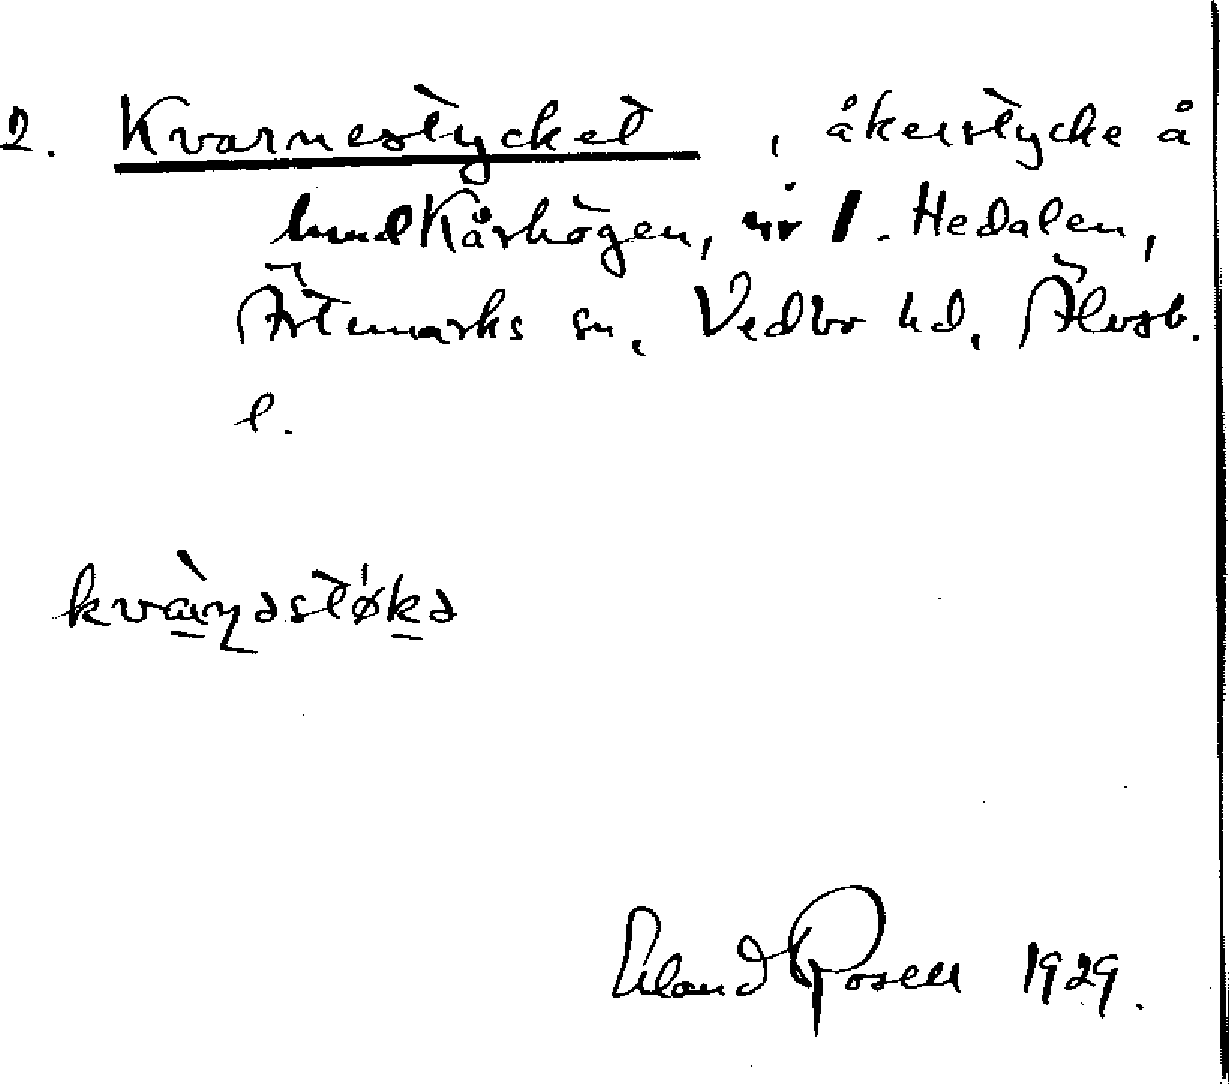 2. Kvarnestycket, åkerstycke å
lund Kårhögen, nr 1. Hedalen,
Ärtemarks sn, Vedbo hd, Älvsb.
l.
kvàṇəstø̍kə
Erland Rosell 1929.